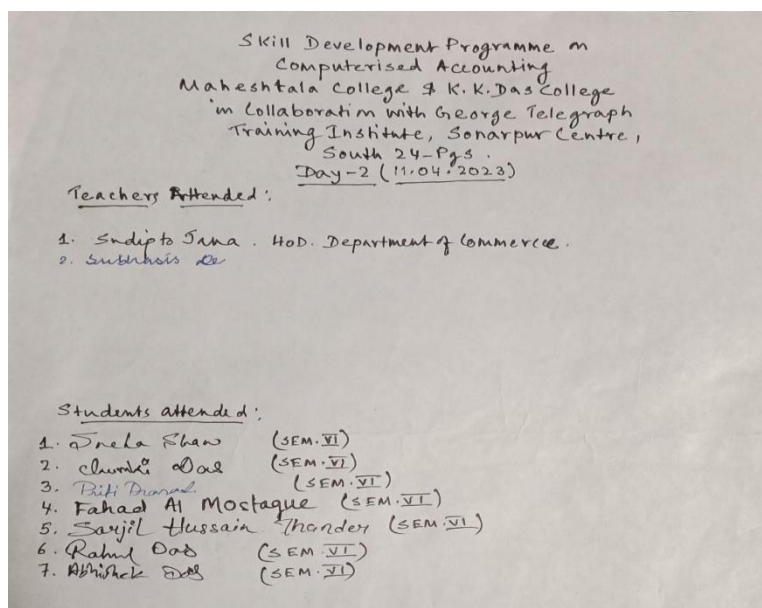 Skill Development Programme on
Computerised Accounting
Maheshtala College & K.K.Das College
in Collaboration with George Telegraph
Training Institute, Sonarpur Centre,
South 24-Pgs.
Day-2 (11.04.2023)
Teachers Attended:
1. Sudipto Jana. HoD. Department of Commerce.
2. Subhasis De
Students attended:
1. Sneha Shaw (SEM.VI)
2. Chumki Das (SEM.VI)
3. Priti (SEM.VI)
4. Fahad Al Mostaque (SEM.VI)
5. Sarjil Hussain Thander (SEM.VI)
6. Rahul Das (SEM.VI)
7. Abhishek Das (SEM.VI)